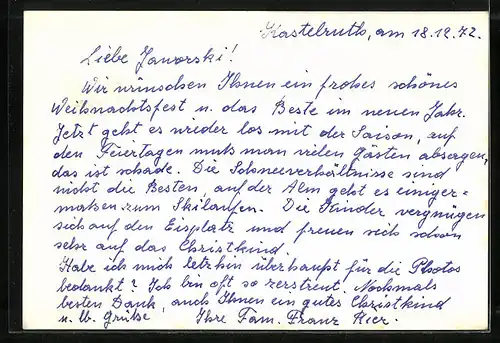 Kastelruth, am 18.12.72.
Liebe Jaworski!
Wir wünschen Ihnen ein frohes schönes
Weihnachtsfest u. das Beste im neuen Jahr.
Jetzt geht es wieder los mit der Saison, auf
den Feiertagen muß man vielen Gästen absagen,
das ist schade. Die Schneeverhältnisse sind
nicht die Besten, auf der Alm geht es einiger=
maßen zum Skilaufen. Die Kinder vergnügen
sich auf den Eisplatz und freuen sich schon
sehr auf das Christkind.
Habe ich mich letzhin überhaupt für die Photos
bedankt? Ich bin oft so zerstreut. Nochmals
besten Dank, auch Ihnen ein gutes Christkind
u. lb. Grüße Ihre Fam. Franz